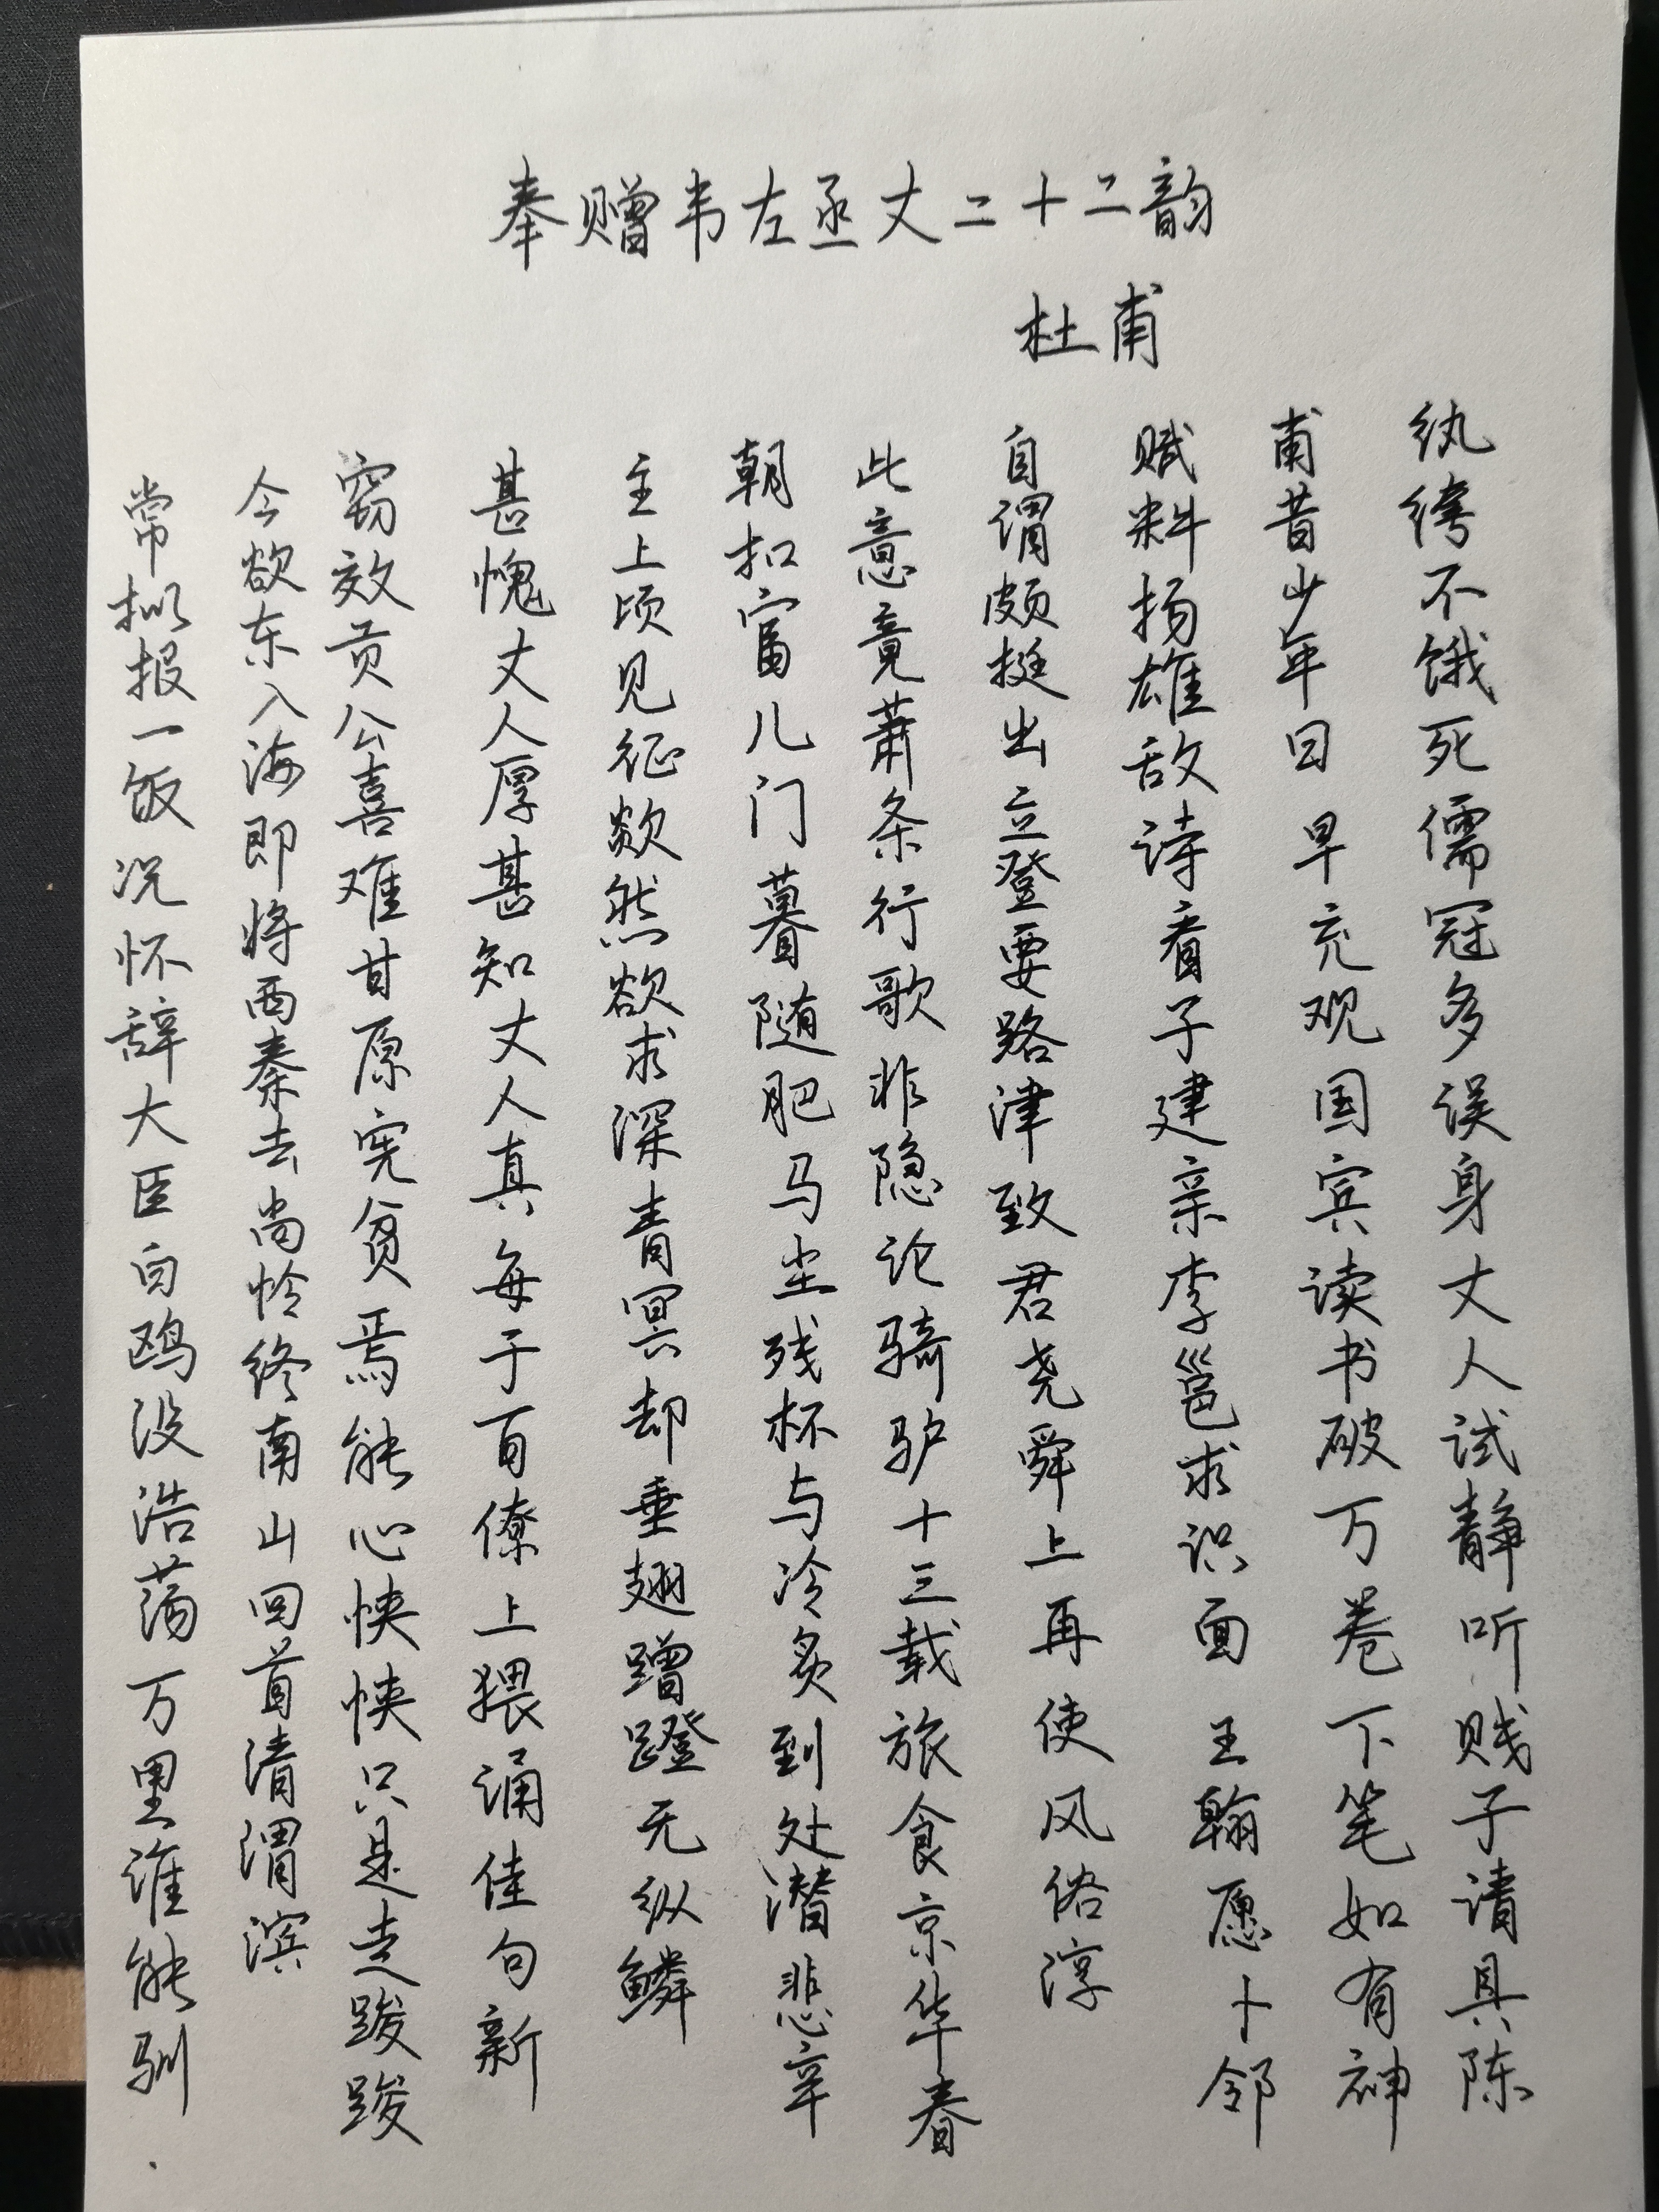 奉赠韦左丞丈二十二韵
杜甫
纨绔不饿死儒冠多误身丈人试静听贱子请具陈
甫昔少年日早充观国宾读书破万卷下笔如有神
赋料扬雄敌诗看子建亲李邕求识面王翰愿卜邻
自谓颇挺出立登要路津致君尧舜上再使风俗淳
此意竟萧条行歌非隐论骑驴十三载旅食京华春
朝扣富儿门暮随肥马尘残杯与冷炙到处潜悲辛
主上顷见征欻然欲求深青冥却垂翅蹭蹬无纵鳞
甚愧丈人厚甚知丈人真每于百僚上猥诵佳句新
窃效贡公喜难甘原宪贫焉能心怏怏只是走踆踆
今欲东入海即将西秦去尚怜终南山回首清渭滨
常拟报一饭况怀辞大臣白鸥没浩荡万里谁能驯.